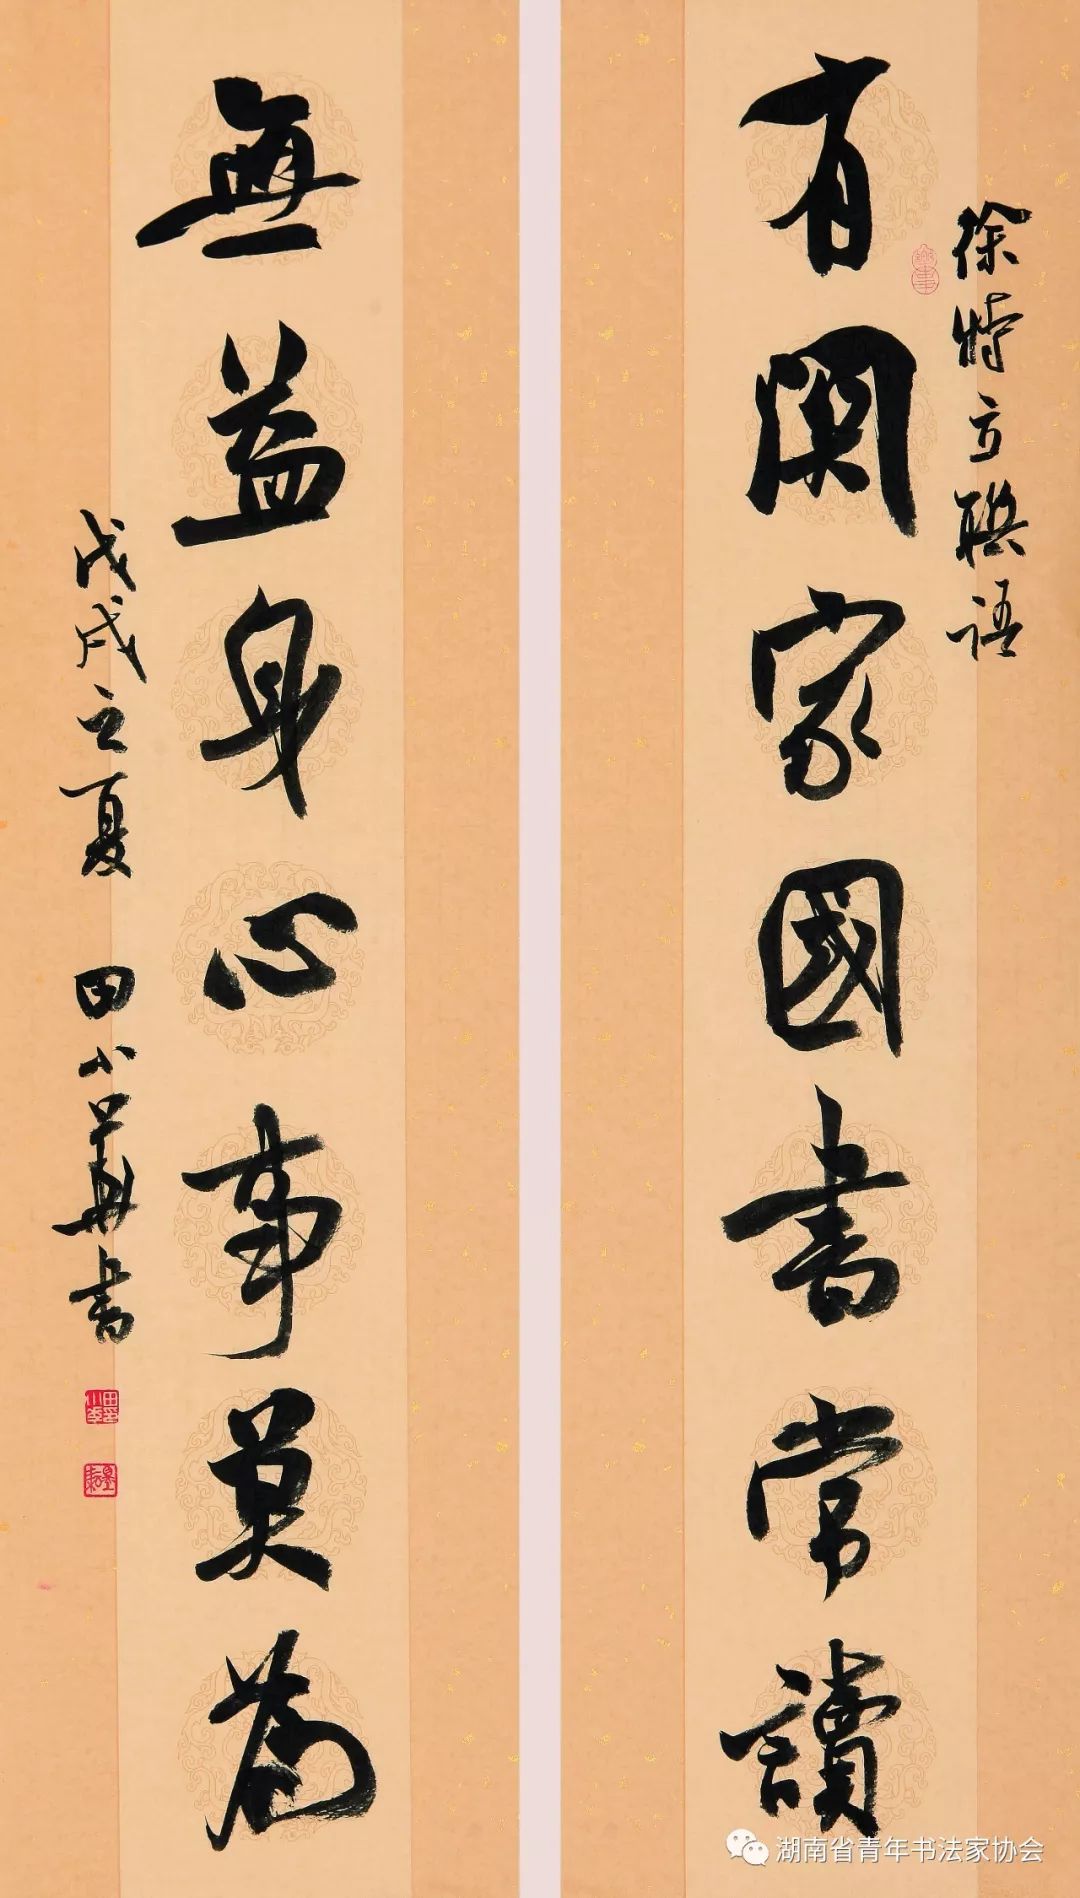 徐特立聯語
有関家國書常讀
無益身心事莫為
戊戌之夏 田小華書
湖南省青年书法家协会